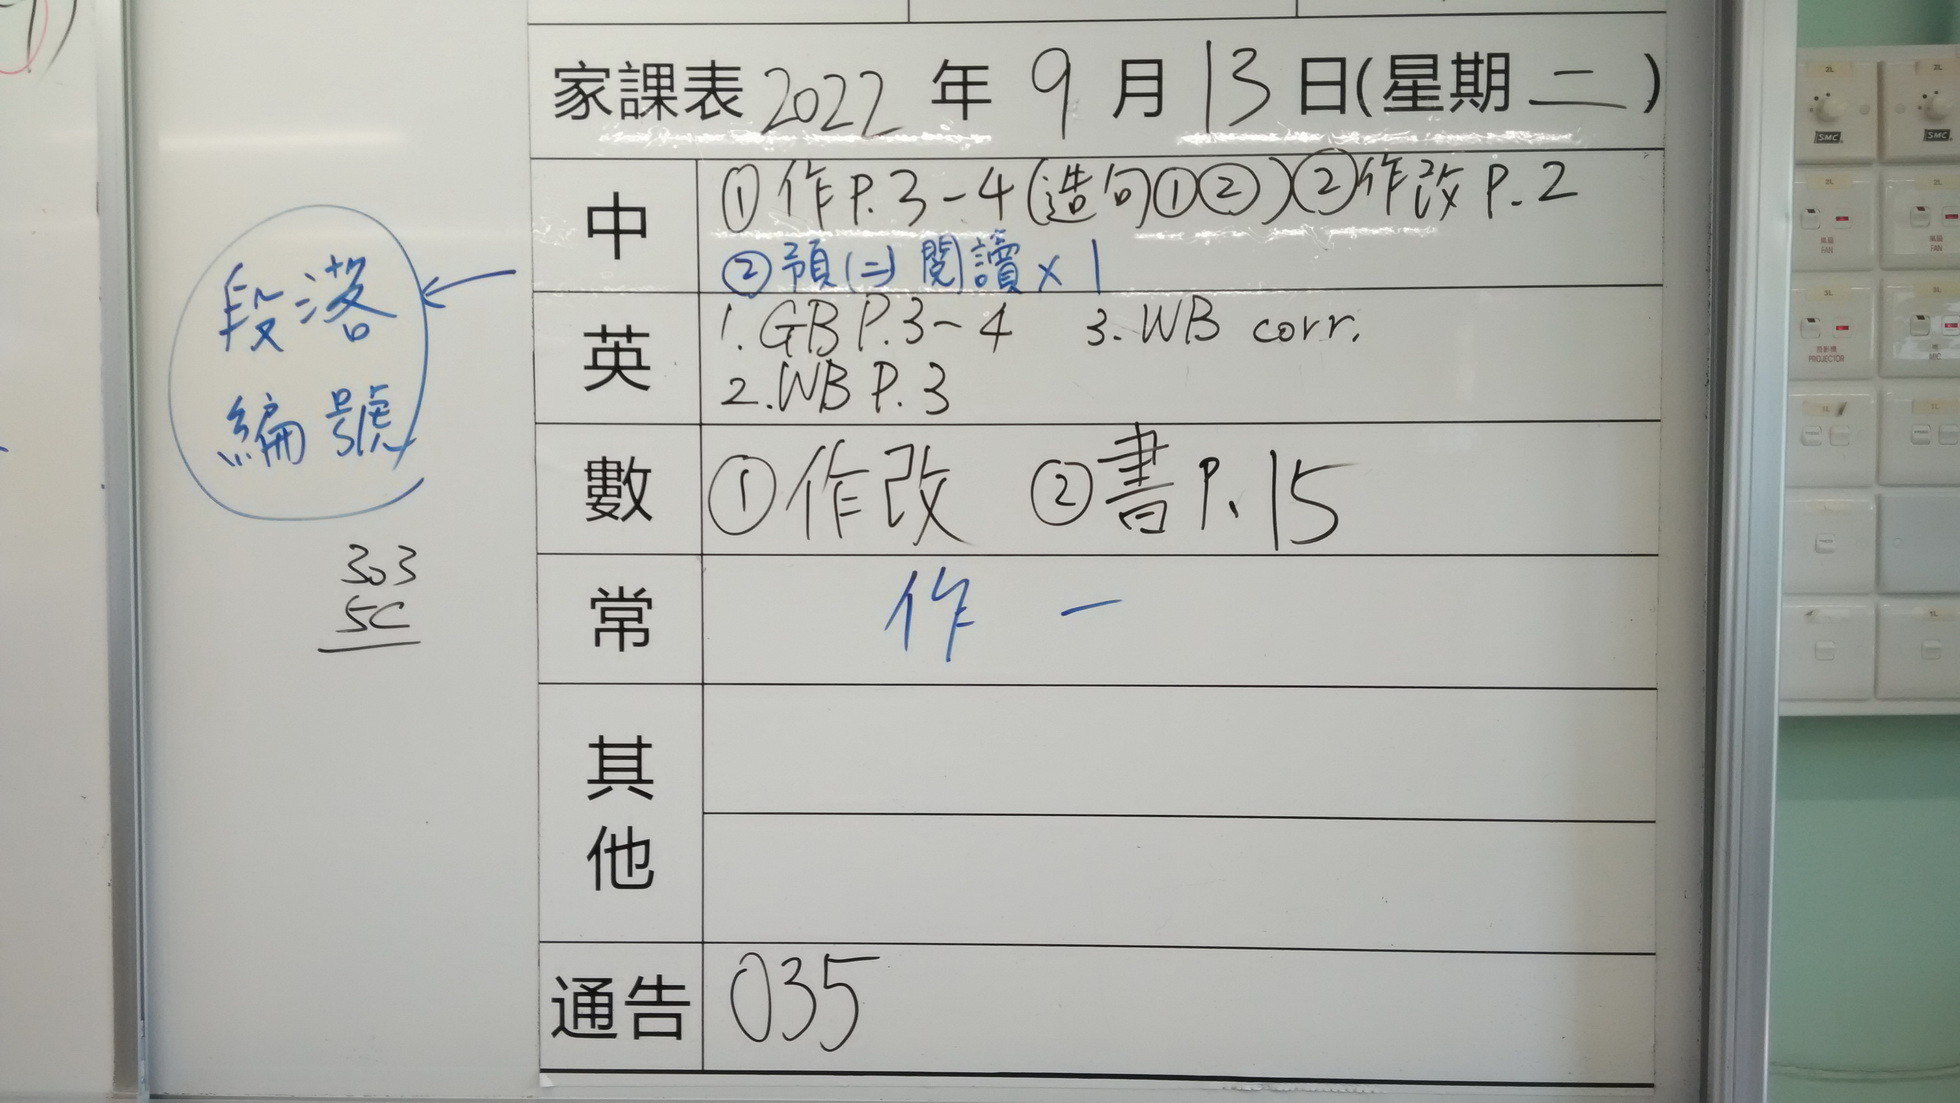 家課表 2022 年 9 月 13 日(星期二)
中
①作P.3-4(造句①②)②作改P.2
②預(二)閱讀×1
段落
編號
英
1.GB P.3-4 3.WB corr.
2.WB P.3
數
①作改 ②書P.15
303
5C
常
作一
其他
通告
035
SMC
SMC
FAN
FAN
PROJECTOR
MIC